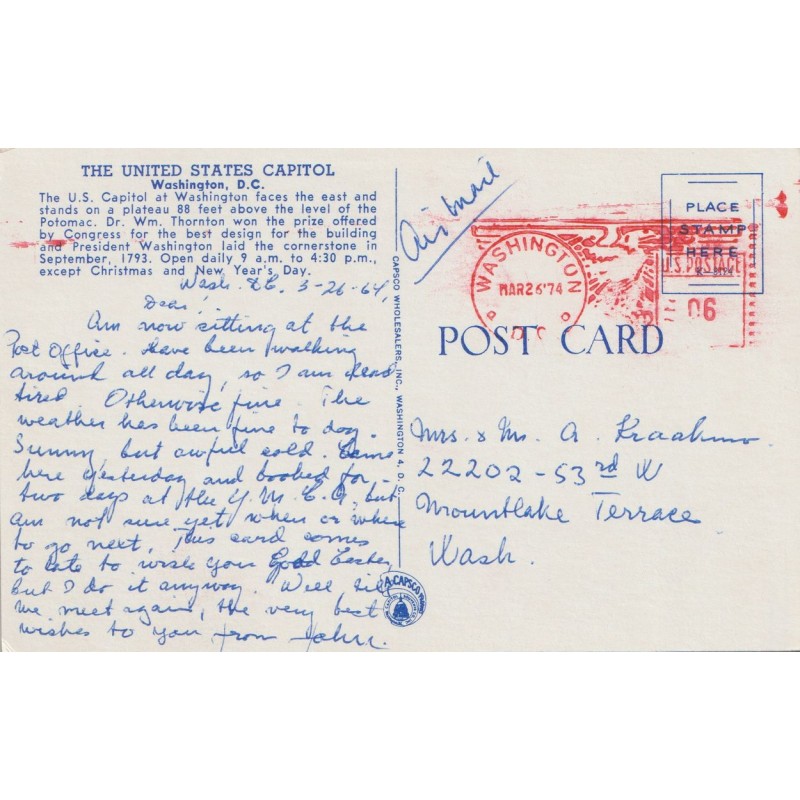 THE UNITED STATES CAPITOL
Washington, D.C.
The U.S. Capitol at Washington faces the east and
stands on a plateau 88 feet above the level of the
Potomac. Dr. Wm. Thornton won the prize offered
by Congress for the best design for the building
and President Washington laid the cornerstone in
September, 1793. Open daily 9 a.m. to 4:30 p.m.,
except Christmas and New Year's Day.
Wash. D.C. 3-26-64,
Dear!
Am now sitting at the
Post Office. Have been walking
around all day, so I am dead
tired. Otherwise fine. The
weather has been fine to day.
Sunny, but awful cold. Came
here yesterday and booked for
two days at the Y.M.C.A, but
am not sure yet when or where
to go next, This card comes
to late to wish you Good Easter,
but I do it anyway. Well till
we meet again, the very best
wishes to you from John.
CAPSCO WHOLESALERS, INC., WASHINGTON 4, D.C.
A CAPSCO
Air Mail
WASHINGTON
MAR 26 '74
D.C.
U.S. POSTAGE
06
PLACE
STAMP
HERE
POST CARD
Mrs. & Mr. A.
22202 - 53rd W
Mountlake Terrace
Wash.